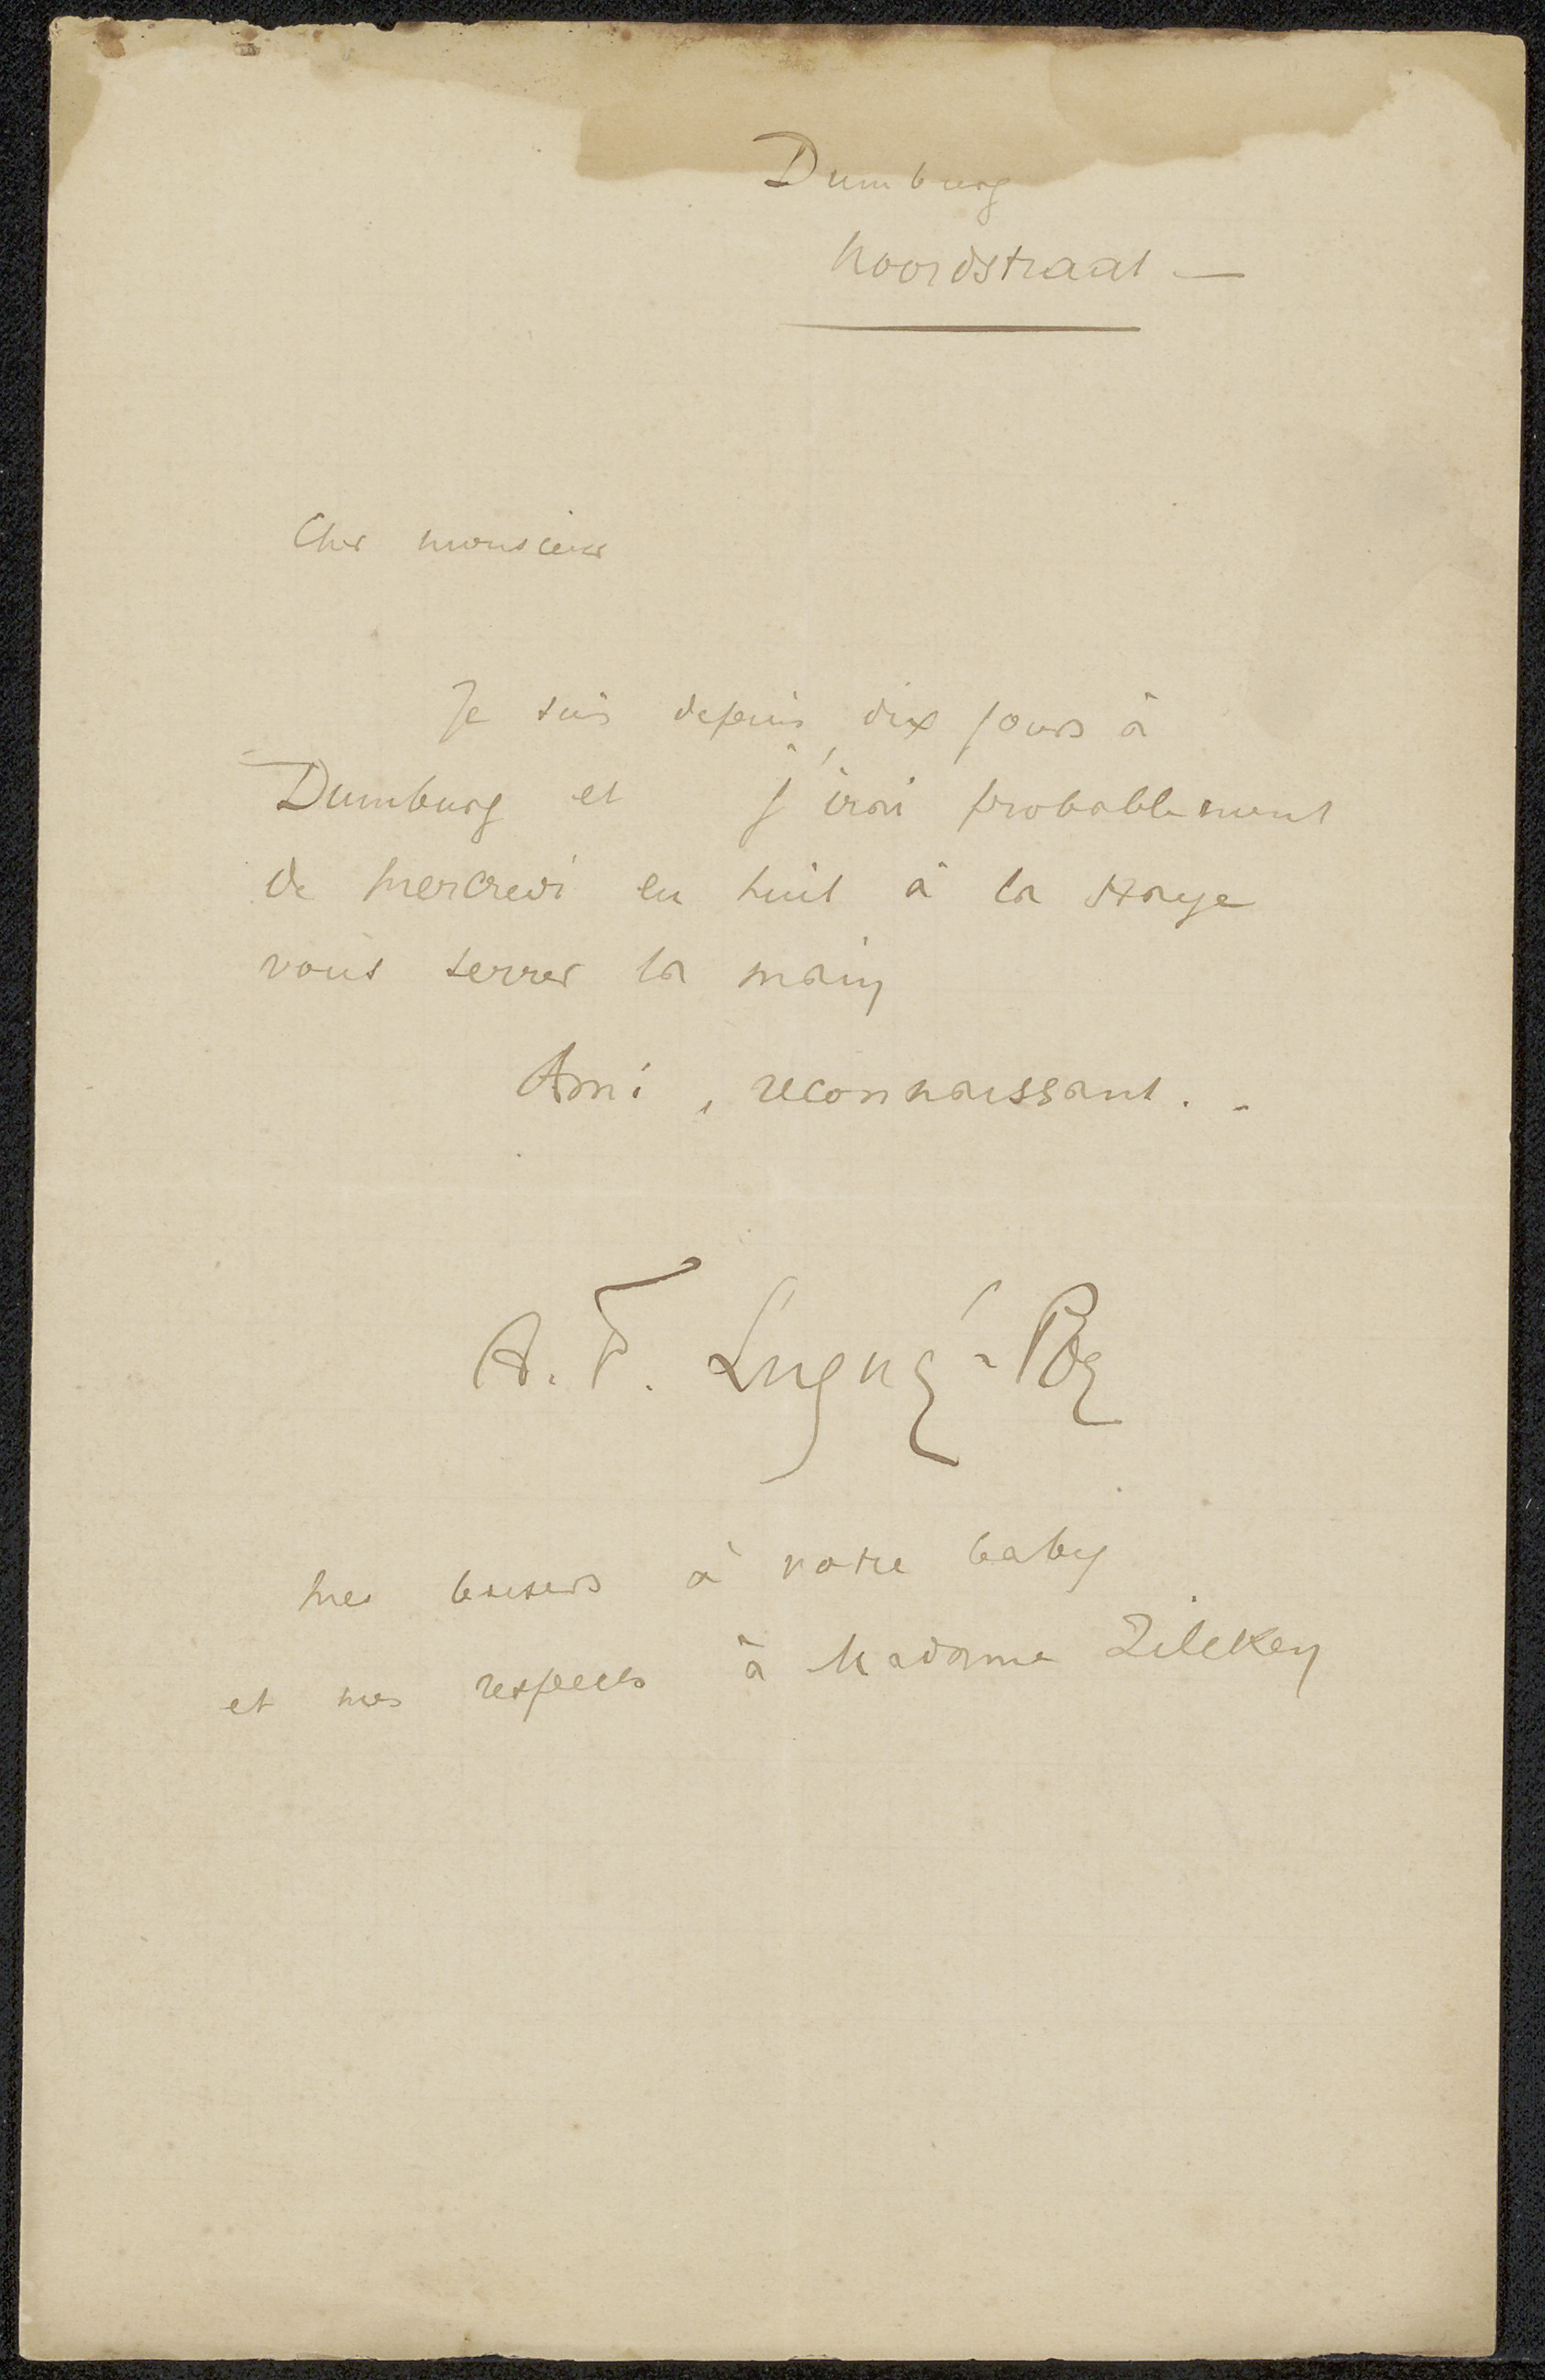 Dumburg
Noordstraat —
Cher monsieur
Je suis depuis dix jours à
Dumburg et j'irai probablement
de mercredi en huit à la Haye
vous serrer la main
Ami, reconnaissant. .
A. F. Lugné-Poe
Mes baisers à votre baby
et mes respects à Madame Zilcken